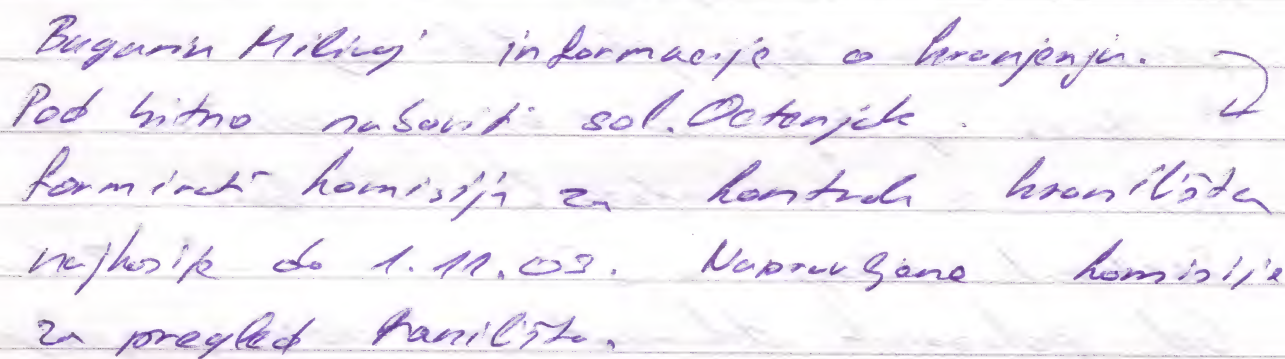 Bugarin Milivoj informacije o hranjenju.
Pod hitno nabaviti sol. Octenjak.
formirati komisiju za kontrolu hranilišta
najkasnije do 1.11.09. Napravljena komisije
za pregled hranilišta.